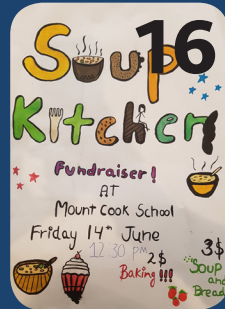 16
Soup
Kitchen
Fundraiser!
AT
Mount Cook School
Friday 14th June
12.30 pm
2$
Baking!!!
3$
Soup
and
Bread